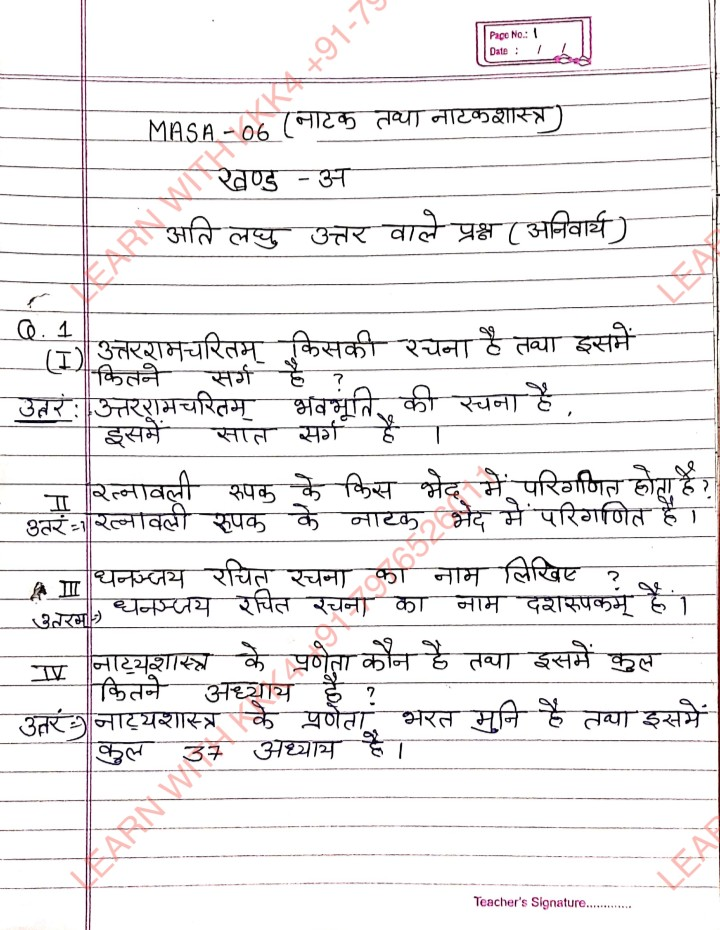 Page No.: 1
Date : / /
MASA-06 (नाटक तथा नाटकशास्त्र)
खण्ड - अ
अति लघु उत्तर वाले प्रश्न (अनिवार्य)
Q. 1
(I) उत्तररामचरितम् किसकी रचना है तथा इसमें
कितने सर्ग है ?
उतरं: उत्तररामचरितम् भवभूति की रचना है,
इसमें सात सर्ग है ।
II रत्नावली रूपक के किस भेद में परिगणित होता है?
उतरं=> रत्नावली रूपक के नाटक भेद में परिगणित है।
III धनञ्जय रचित रचना का नाम लिखिए ?
उतरम=> धनञ्जय रचित रचना का नाम दशरूपकम् है।
IV नाट्यशास्त्र के प्रणेता कौन है तथा इसमें कुल
कितने अध्याय है ?
उतरं=> नाट्यशास्त्र के प्रणेता भरत मुनि है तथा इसमें
कुल 37 अध्याय है।
Teacher's Signature.............
LEARN WITH KKK4 +91-79
LEARN WITH KKK4 +91-7976526011
LEARN
LEARN